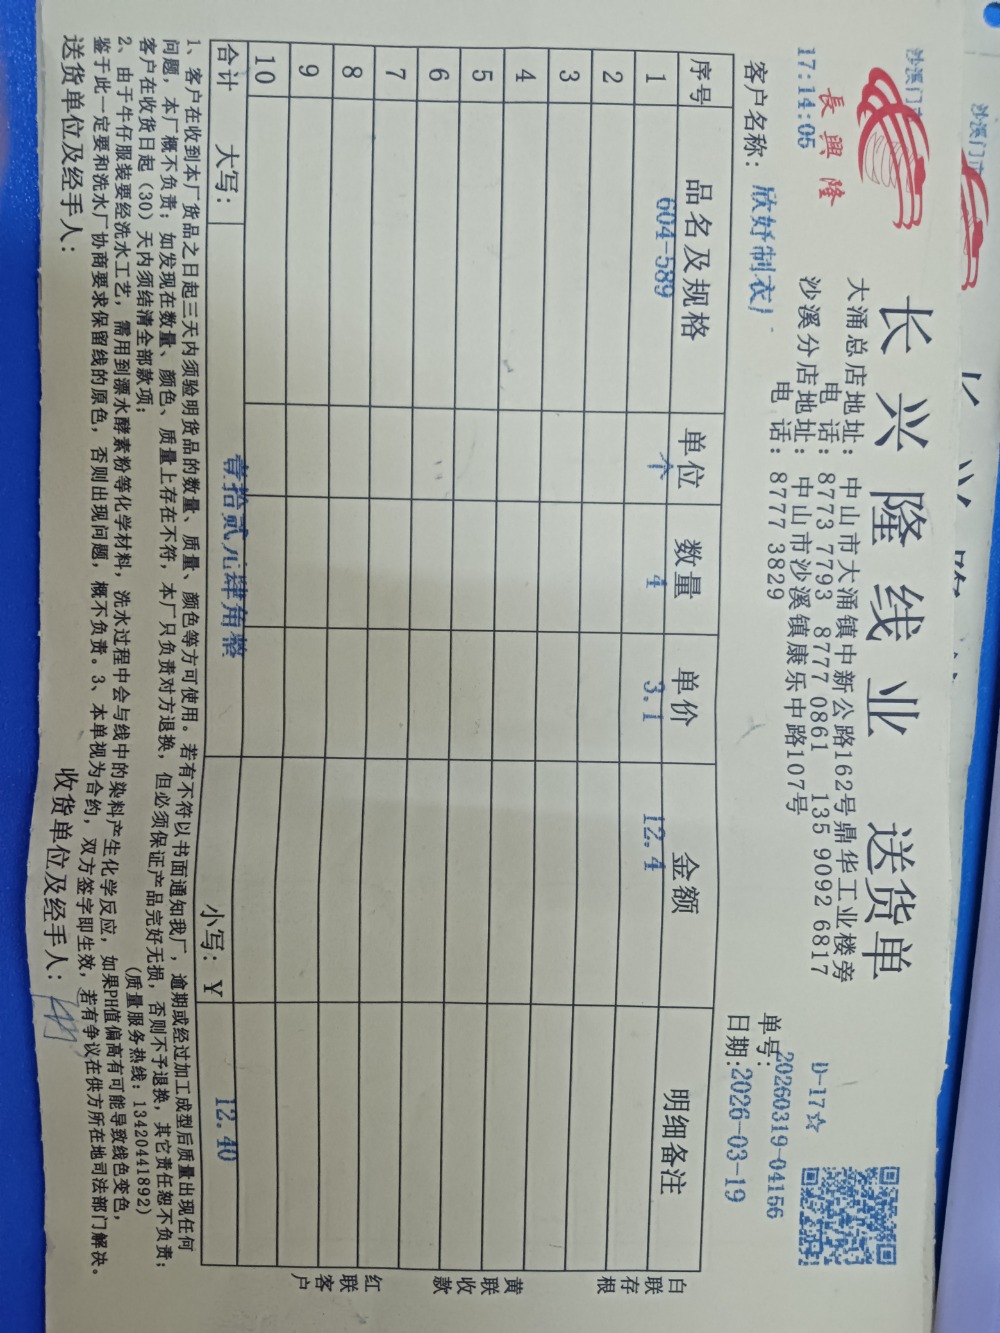 沙溪门市
長興隆
17:14:05
长兴隆线业 送货单
大涌总店地址:中山市大涌镇中新公路162号鼎华工业楼旁
电话:8773 7793 8777 0861 135 9092 6817
沙溪分店地址:中山市沙溪镇康乐中路107号
电话:8777 3829
D-17☆
单号:20260319-04156
日期:2026-03-19
客户名称:欣妤制衣厂
序号 品名及规格 单位 数量 单价 金额 明细备注
1 604-589 个 4 3.1 12.4
2
3
4
5
6
7
8
9
10
合计 大写: 壹拾贰元肆角整 小写:¥ 12.40
白联存根
黄联收款
红联客户
1、客户在收到本厂货品之日起三天内须验明货品的数量、质量、颜色等方可使用。若有不符以书面通知我厂,逾期或经过加工成型后质量出现任何
问题,本厂概不负责;如发现在数量、颜色、质量上存在不符,本厂只负责对方退换,但必须保证产品完好无损,否则不予退换,其它责任恕不负责;
客户在收货日起(30)天内须结清全部款项; (质量服务热线:13420441892)
2、由于牛仔服装要经洗水工艺,需用到漂水酵素粉等化学材料,洗水过程中会与线中的染料产生化学反应,如果PH值偏高有可能导致线色变色,
鉴于此一定要和洗水厂协商要求保留线的原色,否则出现问题,概不负责。3、本单视为合约,双方签字即生效,若有争议在供方所在地司法部门解决。
送货单位及经手人: 收货单位及经手人:
沙溪门市